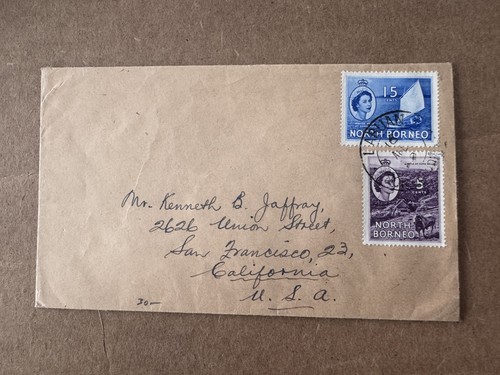 15
CENTS
NORTH BORNEO
5
CENTS
NORTH
BORNEO
Mr. Kenneth B. Jaffray,
2626 Union Street,
San Francisco, 23,
California
U. S. A.
30-